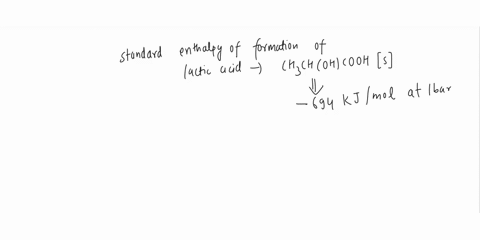 standard enthalpy of formation of
lactic acid → CH3CH(OH)COOH [s]
⇓
-694 KJ/mol at 1bar